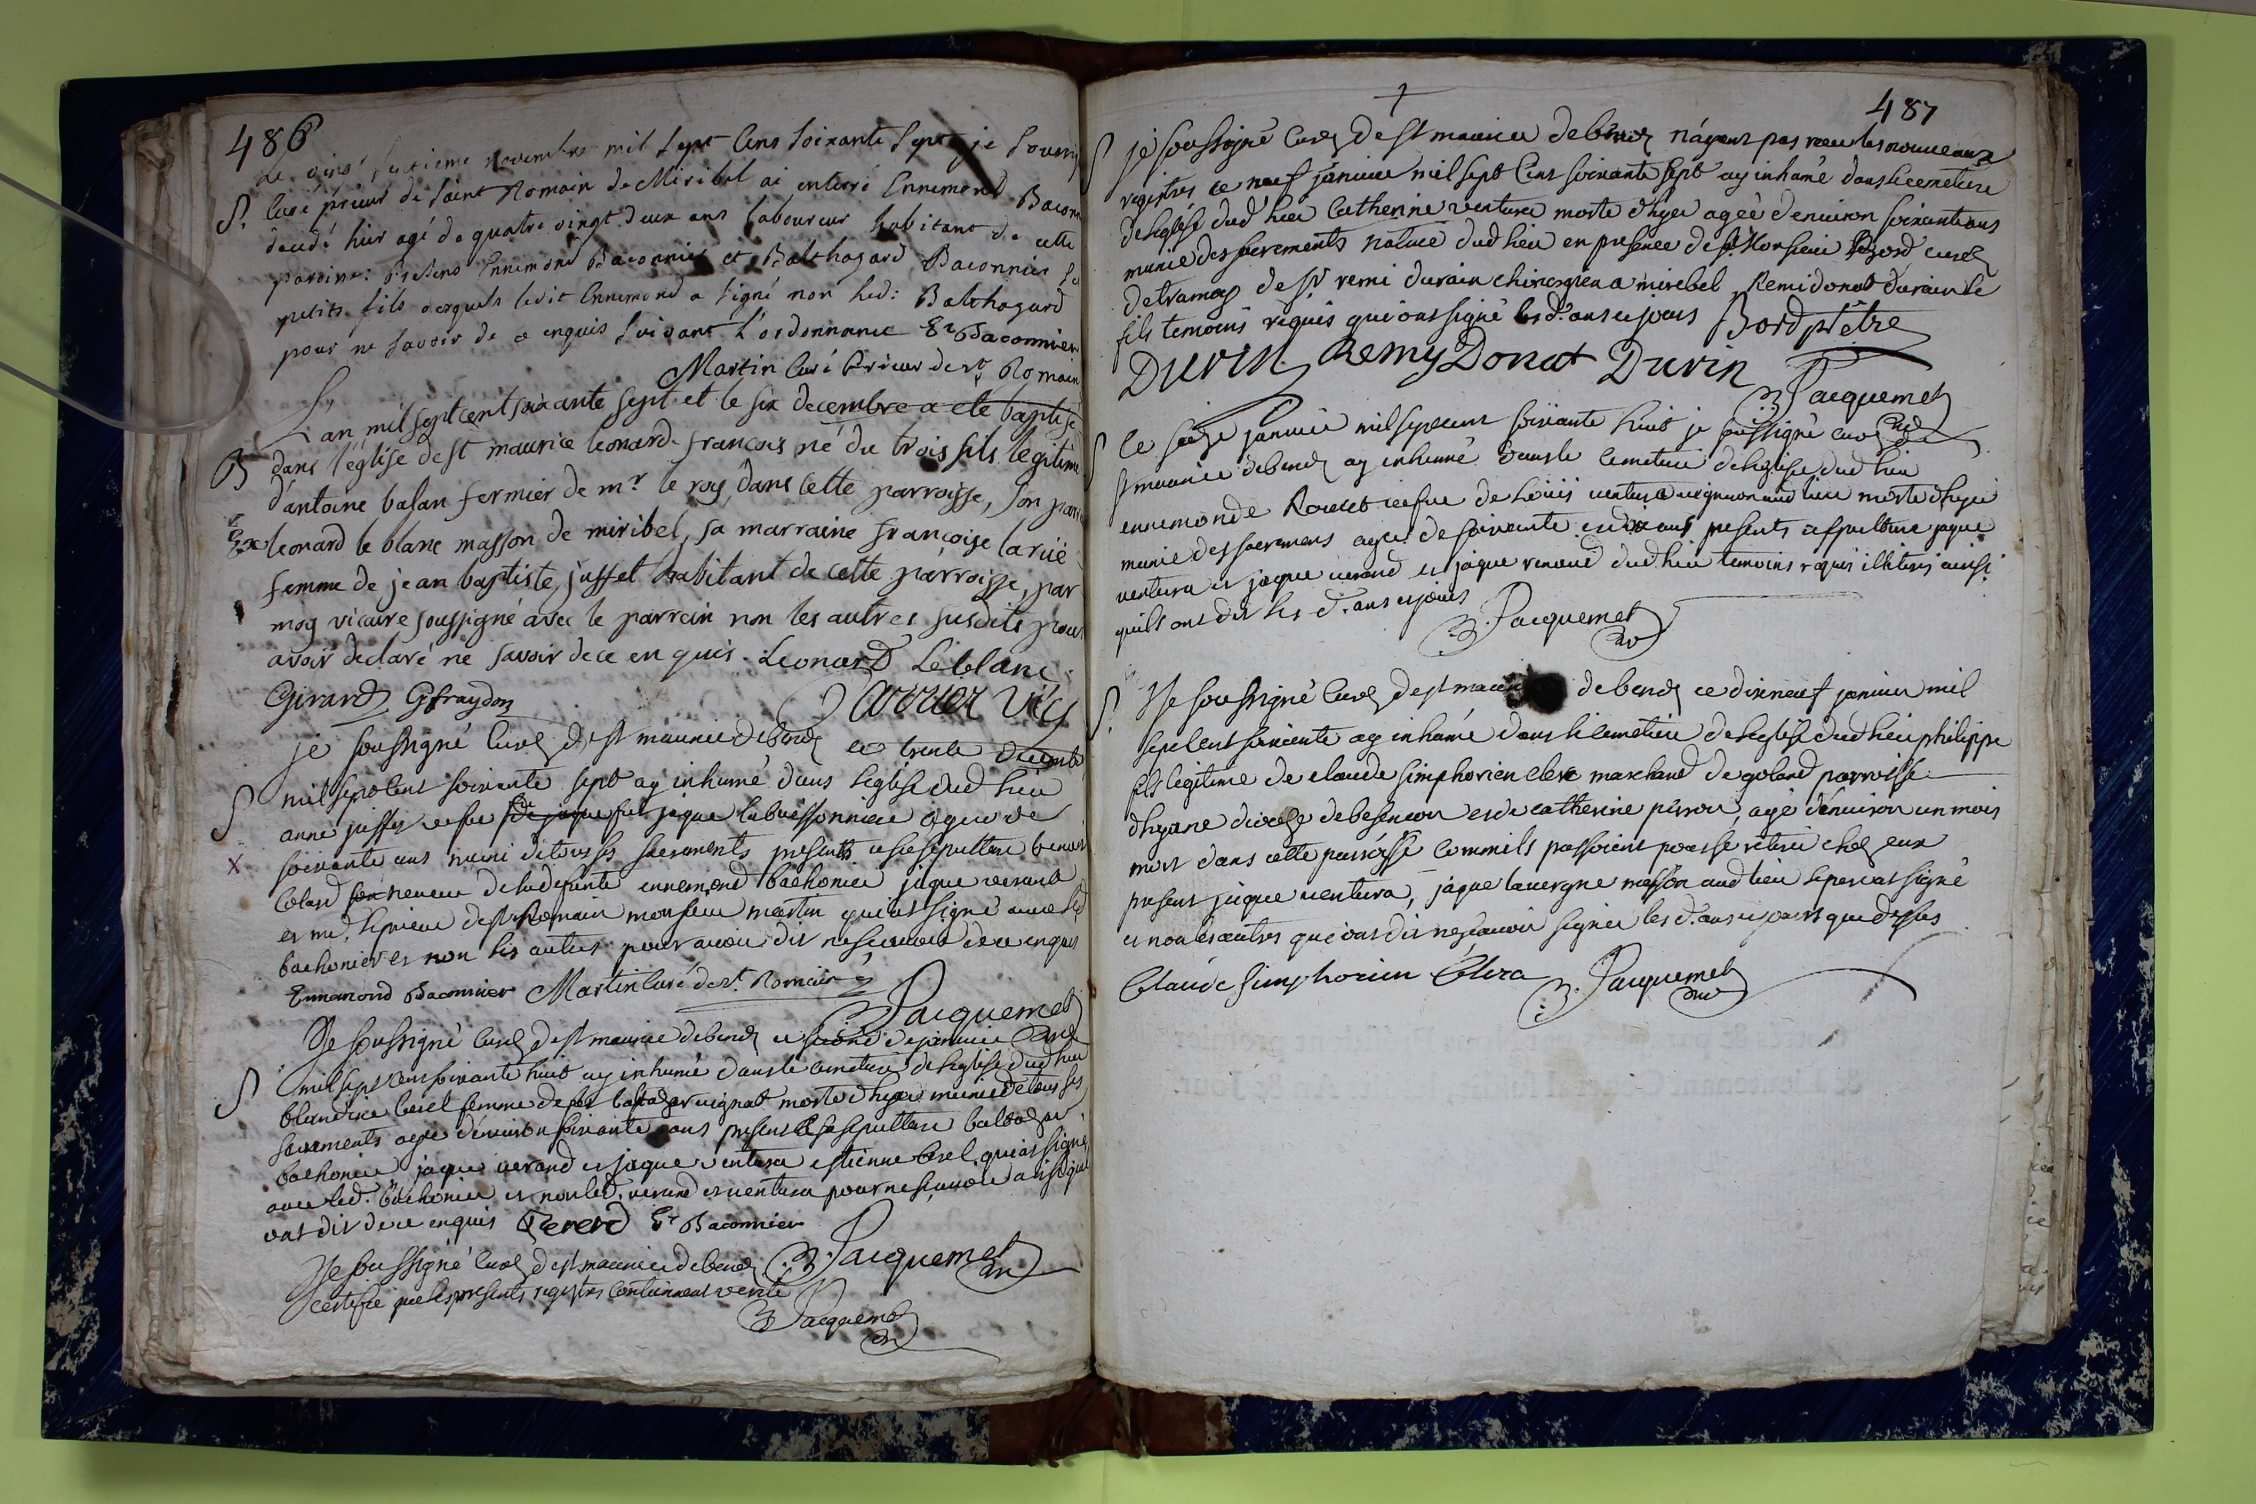 486
le vint septieme novembre mil sept Cens soixante sept je soussigné
S. Curé prieur de saint Romain de Miribel ai enterré Ennemond Baconnier
décédé hier agé de quatre vingt deux ans laboureur habitant de cette
paroisse: présens Ennemond Baconnier et Balthazard Baconnier ses
petits fils desquels ledit Ennemond a signé non led: Balthazard
pour ne savoir de ce enquis suivant l'ordonnance Er Baconnier
Martin Curé Prieur de st Romain
L'an mil sept cent soixante sept et le six decembre a eté baptisé
B dans l'église de st maurice leonard-françois né du trois fils légitime
d'antoine basan fermier de mr le roy, dans cette parroisse, son parrain
leonard le blanc masson de miribel, sa marraine françoise larüe
femme de jean baptiste jusset habitant de cette parroisse, par
moy vicaire soussigné avec le parrein non les autres susdits pour
avoir declaré ne savoir de ce enquis. Leonard Leblanc
Girard Gffraydon
vic
je soussigné Curé de st maurice de beno ce trente decembre
S mil sept Cent soixante sept ay inhumé dans l'église dud lieu
anne jusset vefve de jaque labuissonniere agée de
X soixante ans muni de tous ses sacrements presents a sa sepulture benoit
Colard son neveu de la defunte ennemond bachonier jaque verand
et md. le prieur de st Romain monsieur martin qui ont signé avec led
bachonier et non les autres pour avoir dit ne sçavoir de ce enquis
Ennemond Baconnier Martin Curé de st. Romain
Jacquemet
Je soussigné Curé de st maurice de beno ce second de janvier
S mil sept cens soixante huit ay inhumé dans le cemetiere de l'eglise dud lieu
blandice berel femme de baltazar vignat morte d'hyer munie de tous ses
sacrements agée d'environ soixante ans presents a sa sepulture baltazar
bachonier jaque verand et jaque ventura estienne berel qui ont signé
avec led. bachonier et non led. verand et ventura pour ne sçavoir ainsi qu'ils
ont dit de ce enquis Er Baconnier
Jacquemet
Je soussigné Curé de st maurice de beno
certifie que les presents registres contiennent verité
Jacquemet
487
S je soussigné Curé de st maurice de beno n'ayant pas receu les nouveaux
registres ce neuf janvier mil sept Cens soixante sept ay inhumé dans le cemetiere
de l'église dud lieu Catherine ventura morte d'hyer ageé d'environ soixante ans
munie des sacrements native dud lieu en presence de Monsieur Bord curé
de tramoy de sr remi durain chirurgien a mirebel Remi donat durain le
fils temoins requis qui ont signé les d. ans et jours Bord prêtre
Durin Remy Donat Durin
Jacquemet
S le seize janvier mil sept cent soixante huit je soussigné curé de
st maurice de beno ay inhumé dans le cemetiere de l'eglise dud lieu
ennemonde vefve de Loüis ventura vigneron aud lieu morte d'hyer
munie des sacremens agée de soixante et dix ans presents a sa sepulture jaque
ventura et jaque verand et jaque renaud dud lieu temoins requis illiterés ainsi
qu'ils ont dit les d. ans et jours
Jacquemet
S. Je soussigné Curé de st maurice de beno ce dixneuf janvier mil
sept Cent soixante ay inhumé dans le cemetiere de l'eglise dud lieu philippe
fils legitime de claude simphorien clerc marchand de goland parroisse
dhyane diocese de besençon et de catherine perron, agé d'environ un mois
mort dans cette parroisse comme ils passoient pour se retirer chez eux
present jaque ventura, jaque lavergne masson aud lieu le pere at signé
et non les autres qui ont dit ne sçavoir signer les d. ans et jours que dessus
Claude Simphorien Clerc
Jacquemet